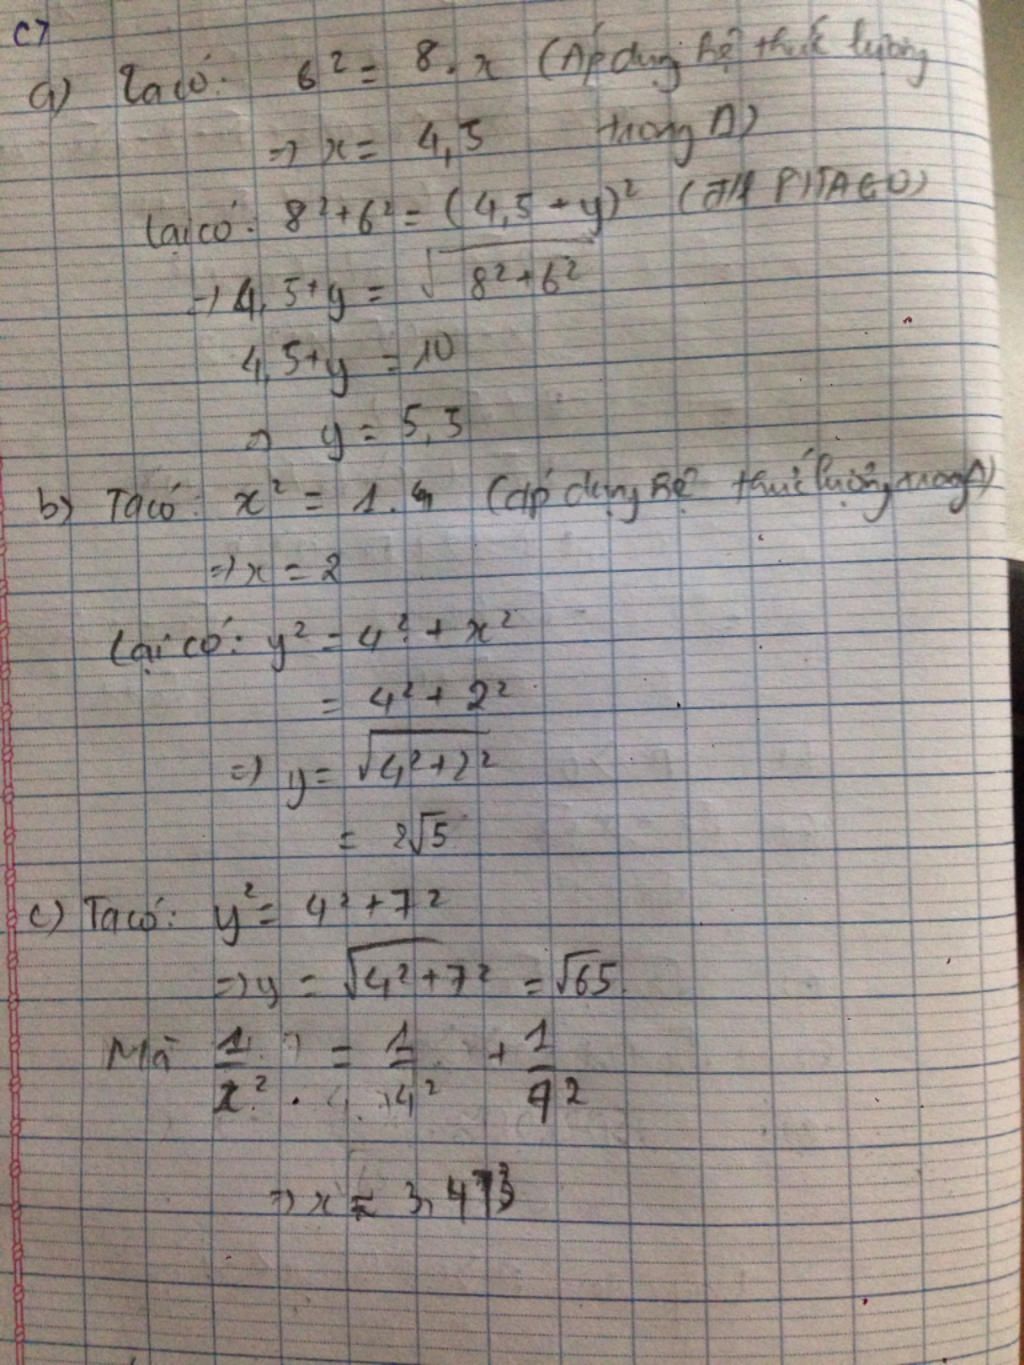 C7
a) Ta có: 6² = 8.x (Áp dụng hệ thức lượng
⇒ x = 4,5 trong Δ)
Lại có: 8²+6² = (4,5 + y)² (ĐL PITAGO)
⇒ 4,5+y = √8²+6²
4,5+y = 10
⇒ y = 5,5
b) Ta có: x² = 1.4 (áp dụng hệ thức lượng trong Δ)
⇒ x = 2
Lại có: y² = 4² + x²
= 4² + 2²
⇒ y = √4²+2²
= 2√5
c) Ta có: y² = 4²+7²
⇒ y = √4²+7² = √65
Mà 1/x² = 1/4² + 1/7²
⇒ x ≈ 3,473